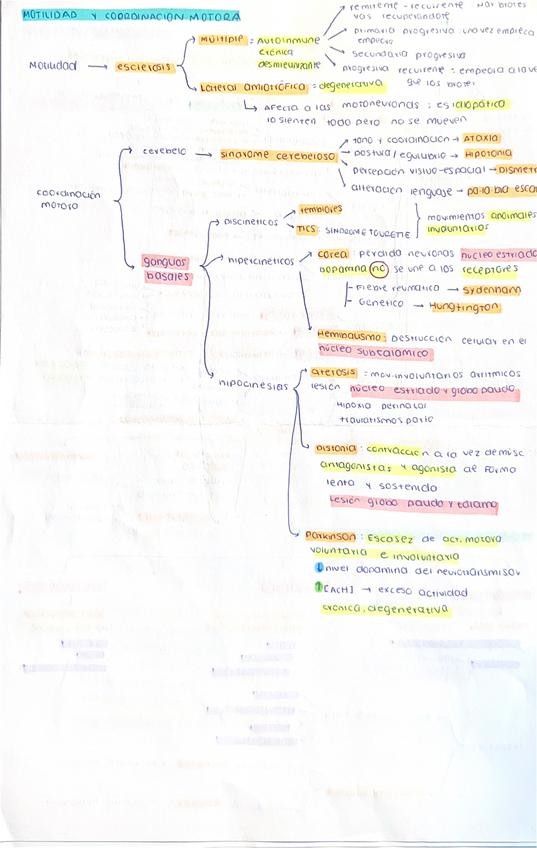 MOTILIDAD Y COORDINACIÓN MOTORA
remitente - recurrente
vas recuperándote
MÚLTIPLE: AUTOINMUNE
crónica
desmielinizante
primaria progresiva: una vez empieza
empeora
secundaria progresiva
progresiva recurrente: empeora a la vez
que los brotes
Motilidad → esclerosis
Lateral amiotrófica: degenerativa
↳ Afecta a las motoneuronas: es idiopático
lo sienten todo pero no se mueven
coordinación
motora
cerebelo → síndrome cerebeloso
tono y coordinación → ATAXIA
postura/equilibrio → Hipotonía
percepción visuo-espacial → DISMETR
alteración lenguaje → palabra esca
ganglios
basales
Discinéticos
temblores
TICS: SINDROME TOURETTE
movimientos anormales
involuntarios
hipercinéticos
corea: pérdida neuronas núcleo estriado
dopamina nO se une a los receptores
Fiebre reumática → sydenham
Genético → Hungtington
Hemibalismo: Destrucción celular en el
núcleo subtalámico
hipocinesias
aterosis: mov. involuntarios arrítmicos
lesión núcleo estriado y globo pálido
Hipoxia perinatal
traumatismos parto
Distonía: contracción a la vez de músc
antagonistas y agonista de forma
lenta y sostenida
Lesión globo pálido y tálamo
Parkinson: Escasez de act. motora
voluntaria e involuntaria
↓ nivel dopamina del neurotransmisor
↑ [ACH] → exceso actividad
crónica, degenerativa